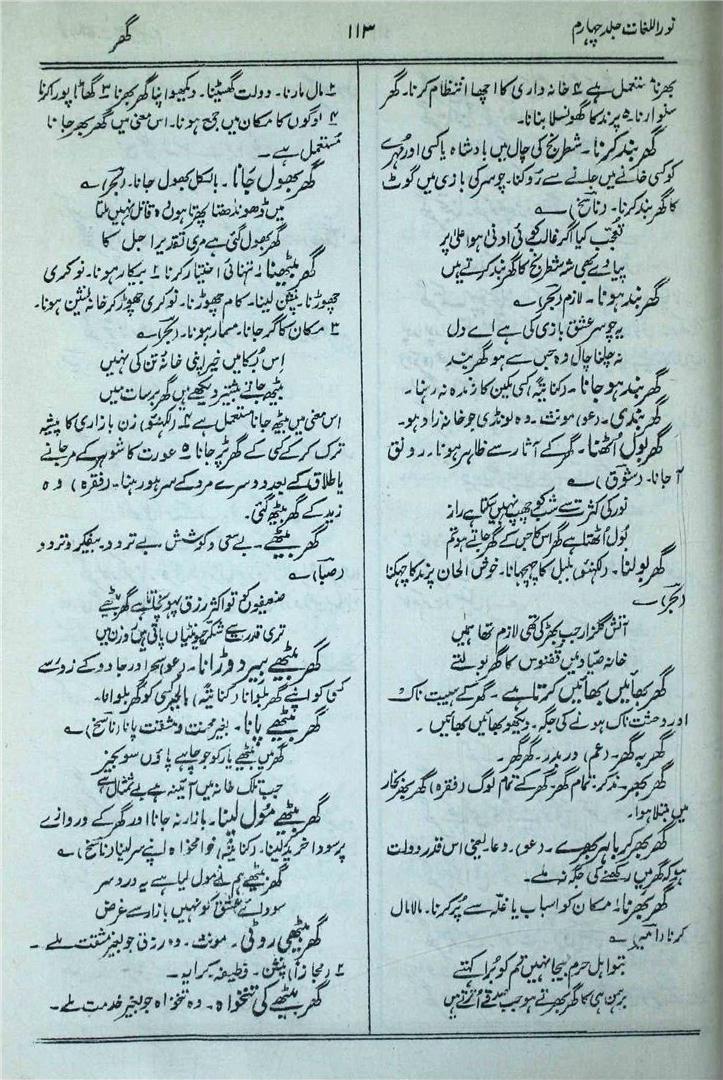 نور اللغات جلد چہارم
۱۱۳
گھر
بھرنا مستعمل ہے ۴ خانہ داری کا اچھا انتظام کرنا۔ گھر
سنوارنا۔ ۵ پرند کا گھونسلا بنانا۔
گھر بند کرنا۔ شطرنج کی چال میں بادشاہ یا کسی اور مُہرے
کو کسی خانے میں جانے سے روکنا۔ چوسر کی بازی میں گوٹ
کا گھر بند کرنا۔ (ناسخ) ؎
تعجب کیا اگر غالب کوئی ادنیٰ ہو اعلیٰ پر
پیادے بھی شہ شطرنج کا گھر بند کرتے ہیں
گھر بند ہونا۔ لازم (بحر) ؎
یہ چوسر عشق بازی کی ہے اے دل
نہ چلنا چال وہ جس سے ہو گھر بند
گھر بند ہو جانا۔ (کنایۃً) کسی مکین کا زندہ نہ رہنا۔
گھر بندی۔ (عو) مونث۔ وہ لونڈی جو خانہ زاد ہو۔
گھر بول اُٹھنا۔ گھر کے آثار سے ظاہر ہونا۔ رونق
آ جانا۔ (شوق) ؎
نور کی کثرت سے شب کو چھپ نہیں سکتا ہے راز
بول اُٹھتا ہے گھر اس کا جس کے گھر جاتے ہو تم
گھر بولنا۔ (لکھنؤ) بلبل کا چہچہانا۔ خوش الحان پرند کا چہکنا
(بحر) ؎
آتش گلزار جب بھڑکی تھی لازم تھا ہمیں
خانہ صیاد میں ققنوس کا گھر بولتے
گھر بھائیں بھائیں کرتا ہے۔ گھر کے ہیبت ناک
اور وحشت ناک ہونے کی جگہ۔ دیکھو بھائیں بھائیں۔
گھر بہ گھر۔ (عم) در بدر۔ گھر گھر۔
گھر بھر۔ مذکر۔ تمام گھر۔ گھر کے تمام لوگ (فقرہ) گھر بھر بخار
میں مبتلا ہوا۔
گھر بھر کر باہر بھرے۔ (عو)۔ دعا۔ یعنی اس قدر دولت
ہو کہ گھر میں رکھنے کی جگہ نہ ملے۔
گھر بھرنا ۱ مکان کو اسباب یا غلّہ سے پُر کرنا۔ مالا مال
کرنا (امیر) ؎
بتو اہل حرم بیجا نہیں تم کو بُرا کہتے
برہمن ہی کا گھر بھرتے ہو جب صدقے اُترتے ہیں
۲ مال مارنا۔ دولت گھسیٹنا۔ دیکھو اپنا گھر بھرنا ۳ گھاٹا پورا کرنا
۴ لوگوں کا مکان میں جمع ہونا۔ اس معنی میں گھر بھر جانا
مستعمل ہے۔
گھر بھول جانا۔ بالکل بھول جانا۔ (بحر) ؎
میں ڈھونڈھتا پھرتا ہوں وہ قاتل نہیں ملتا
گھر بھول گئی ہے مری تقدیر اجل کا
گھر بیٹھنا ۱ تنہائی اختیار کرنا ۲ بیکار ہونا۔ نوکری
چھوڑنا۔ پنشن لینا۔ کام چھوڑنا۔ نوکری چھوڑ کر خانہ نشین ہونا۔
۳ مکان کا گر جانا۔ مسمار ہونا۔ (بحر) ؎
اس بُکا میں خیر اپنی خانۂ تن کی نہیں
بیٹھ جاتے بیشتر دیکھے ہیں گھر برسات میں
اس معنی میں بیٹھ جانا مستعمل ہے ۴ (لکھنؤ) زن بازاری کا پیشہ
ترک کر کے کسی کے گھر پڑ جانا ۵ عورت کا شوہر کے مر جانے
یا طلاق کے بعد دوسرے مرد کے سر ہو رہنا۔ (فقرہ) وہ
زید کے گھر بیٹھ گئی۔
گھر بیٹھے۔ بے سعی و کوشش بے تردد۔ بیفکر و تردد
(صبا) ؎
ضعیفوں کو تو اکثر رزق پہونچتا ہے گھر بیٹھے
تری قدرت سے شکر چیونٹیاں پاتی ہیں روزن میں
گھر بیٹھے بیر دوڑانا۔ (عو) سحر اور جادو کے زور سے
کسی کو اپنے گھر بلوانا (کنایۃً) بالجبر کسی کو گھر بلوانا۔
گھر بیٹھے پانا۔ بغیر محنت و مشقت پانا (ناسخ) ؎
گھر میں بیٹھے یار کو جو چاہے پاؤں سو بجز
جب تلک خانہ میں آئینہ ہے بے تمثال ہے
گھر بیٹھے مُول لینا۔ بازار نہ جانا اور گھر کے دروازے
پر سودا خرید لینا۔ (کنایۃً) خوامخواہ اپنے سر لینا (ناسخ) ؎
گھر بیٹھے ہم نے مول لیا ہے یہ درد سر
سودائے عشق کو نہیں بازار سے غرض
گھر بیٹھی روٹی۔ مونث۔ وہ رزق جو بغیر مشقت ملے۔
۲ (مجازاً) پنشن۔ وظیفہ۔ کرایہ۔
گھر بیٹھے کی تنخواہ۔ وہ تنخواہ جو بغیر خدمت ملے۔